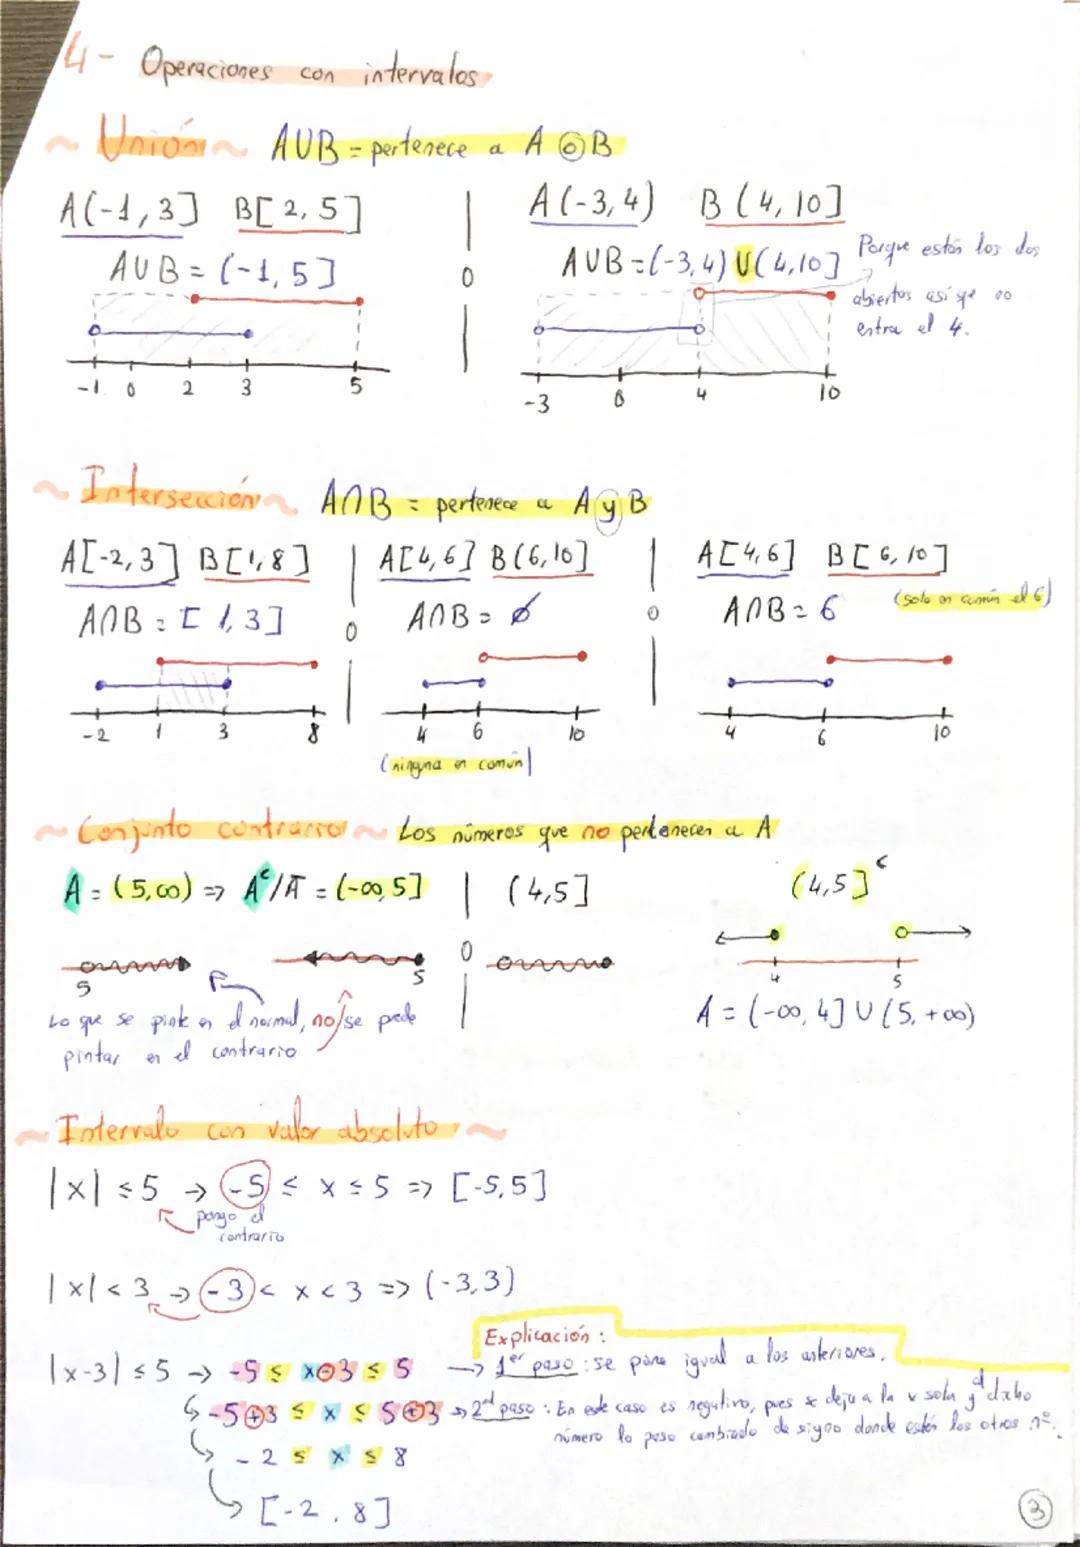 4- Operaciones con intervalos
~ Unión ~ AUB = pertenece a A o B
A(-1,3] B[2,5]
AUB = (-1,5]
-1 0 2 3 5
o
A(-3,4) B(4,10]
AUB=(-3,4)U(4,10]
Porque están los dos
abiertos así qe no
entra el 4.
-3 0 4 10
~ Intersección ~ A∩B = pertenece a A y B
A[-2,3] B[1,8]
A∩B = [1,3]
-2 1 3 8
o
A[4,6] B(6,10]
A∩B = ∅
4 6 10
(ninguna en común)
o
A[4,6] B[6,10]
A∩B = 6 (solo en común el 6)
4 6 10
~ Conjunto contrario ~ Los números que no pertenecen a A
A = (5,∞) => Aᶜ/Ā = (-∞,5]
5 5
Lo que se pinte en el normal, no se puede
pintar en el contrario
o
(4,5]
(4,5]ᶜ
4 5
A = (-∞,4] U (5,+∞)
~ Intervalo con valor absoluto ~
|x| ≤ 5 → -5 ≤ x ≤ 5 => [-5,5]
pongo el
contrario
|x| < 3 → -3 < x < 3 => (-3,3)
Explicación:
|x-3| ≤ 5 → -5 ≤ x-3 ≤ 5 → 1er paso: se pone igual a los anteriores.
-5+3 ≤ x ≤ 5+3 → 2nd paso: En este caso es negativo, pues se deja a la x sola y el dicho
número lo paso cambiado de signo donde están los otros nº.
-2 ≤ x ≤ 8
[-2,8]
3